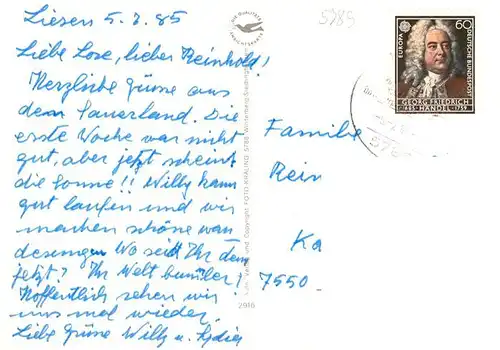 Liesen 5.7.85
Liebe Lore, lieber Reinhold!
Herzliche Grüsse aus
dem Sauerland. Die
erste Woche war nicht
gut, aber jetzt scheint
die Sonne!! Willy kann
gut laufen und wir
machen schöne wan
derungen Wo seid Ihr denn
jetzt? Ihr Weltbummler!
Hoffentlich sehen wir
uns mal wieder.
Liebe Grüsse Willy u. Lydia
2916
FOTO KRAUND 5788 Winterberg-Siedlinghausen
5789
EUROPA
60
DEUTSCHE BUNDESPOST
GEORG FRIEDRICH
1685 HÄNDEL 1759
578
Familie
Rein
Ka
7550